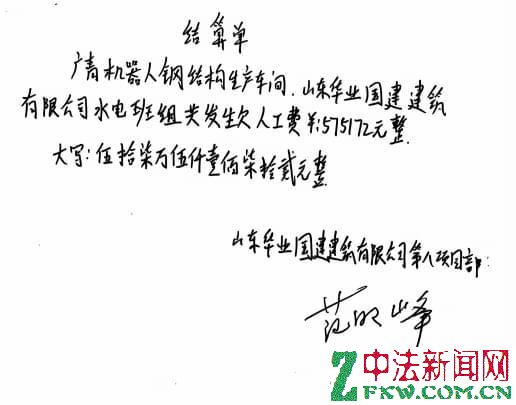 结算单
广青机器人钢结构生产车间.山东华业国建建筑
有限公司水电班组共发生欠人工费￥:575172元整.
大写:伍拾柒万伍仟壹佰柒拾贰元整.
山东华业国建建筑有限公司第八项目部:
范明峰
中法新闻网
ZFKW.COM.CN